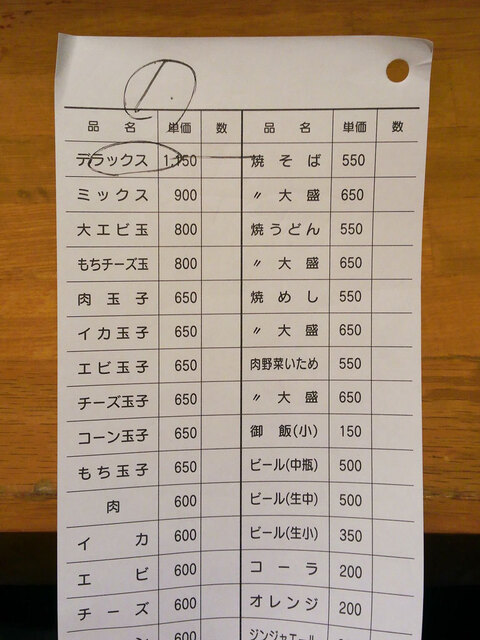 1.
品名 単価 数 品名 単価 数
デラックス 1,150 焼そば 550
ミックス 900 〃大盛 650
大エビ玉 800 焼うどん 550
もちチーズ玉 800 〃大盛 650
肉玉子 650 焼めし 550
イカ玉子 650 〃大盛 650
エビ玉子 650 肉野菜いため 550
チーズ玉子 650 〃大盛 650
コーン玉子 650 御飯(小) 150
もち玉子 650 ビール(中瓶) 500
肉 600 ビール(生中) 500
イカ 600 ビール(生小) 350
エビ 600 コーラ 200
チーズ 600 オレンジ 200
600 ジンジャエール